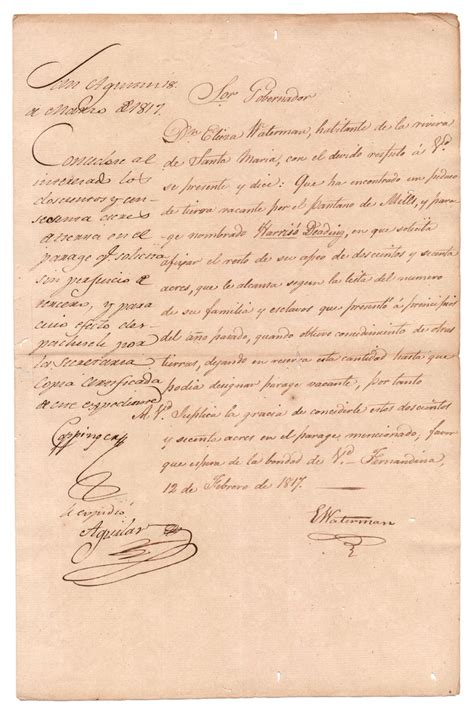 San Agustin 18.
de Marzo de 1817.
Concedese al
interesado los
doscientos y
sesenta acres
de tierra en el
parage q.e solicita
sin perjuicio de
tercero, y para
cuio efecto des-
pachesele por
la Secretaria
copia certificada
de este expediente
Coppinger
Se expidió
Aguilar
Sor Gobernador
Dn Elieza Waterman, habitante de la rivera
de Santa Maria, con el devido respeto á Vd
se presenta y dice: Que ha encontrado un pedaso
de tierra vacante por el pantano de Mills, y para-
ge nombrado en que solicita
afijar el resto de su apeo de doscientos y sesenta
acres, que le alcanza segun la lista del numero
de su familia y esclavos que presentó á principios
del año pasado, quando obtuvo concedimiento de otras
tierras, dejando en reserva esta cantidad hasta que
podia designar parage vacante, por tanto
A Vd Suplica la gracia de concederle estos doscientos
y sesenta acres en el parage mencionado, favor
que espera de la bondad de Vd Fernandina,
12 de Febrero de 1817.
EWaterman